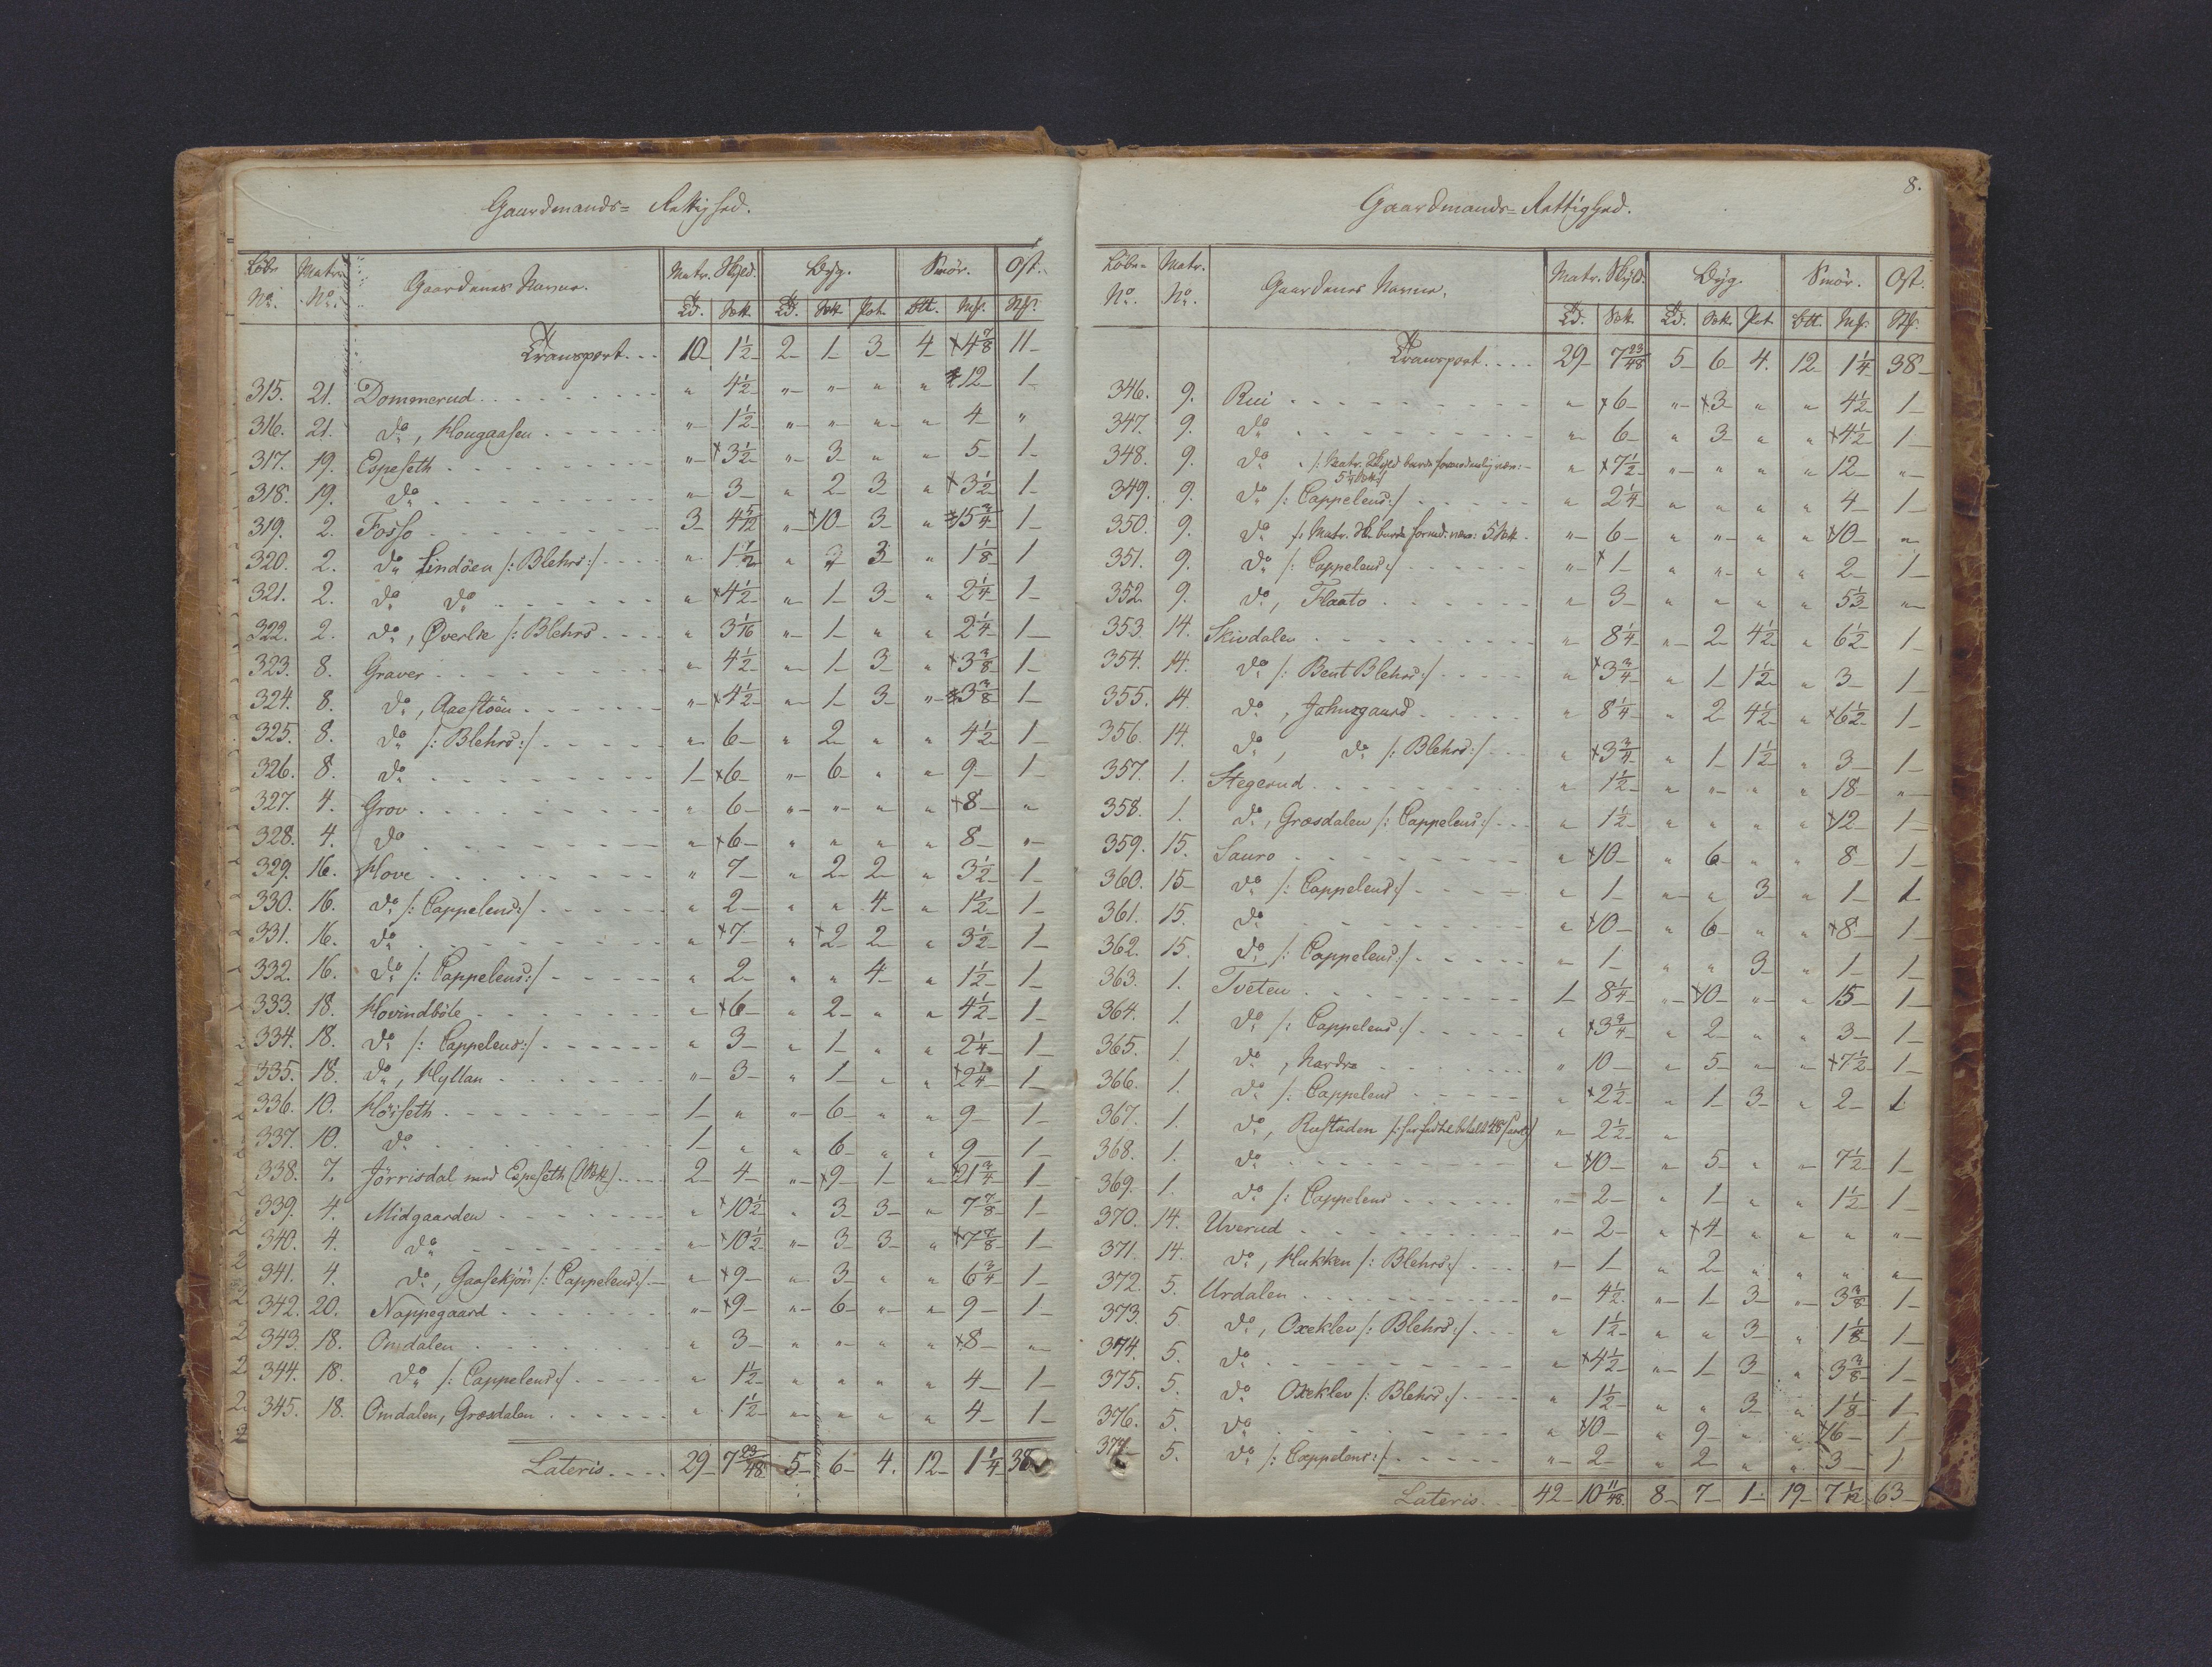 Gaardmands= Rettighed.
Løbe No. Matr. No. Gaardenes Navne. Matr. Skyld. Byg. Smør. Ost.
Td. Sett. Td. Sett. Pot. Mk. Stk.
Transport. . . 10 1½ 2 1 3 4 ×4⅞ 11
315. 21. Dommerud . . . " 4½ " " " " ×12 1
316. 21. do, Hougaasen . . . " 1½ " " " " 4 "
317. 19. Espeseth . . . " ×3½ " 3 " " 5 1
318. 19. do . . . " 3 " 2 3 " ×3½ 1
319. 2. Fosso . . . 3 4 5/12 " ×10 3 " ×15¾ 1
320. 2. do Lindöen /: Blehrs :/ . . . " 1½ " 3 " 1⅛ 1
321. 2. do do . . . " ×4½ " 1 3 " 2¼ 1
322. 2. do, Øverlie /: Blehrs . . . " 3 1/16 " 1 " " 2¼ 1
323. 8. Graver . . . " 4½ " 1 3 " ×3⅜ 1
324. 8. do, Aaestöen . . . " ×4½ " 1 3 " ×3⅜ 1
325. 8. do /: Blehrs :/ . . . " 6 " 2 " " 4½ 1
326. 8. do . . . 1 ×6 " 6 " " 9 1
327. 4. Grov . . . " 6 " " " " ×8 "
328. 4. do . . . " ×6 " " " " 8 "
329. 16. Hove . . . " 7 " 2 2 " 3½ 1
330. 16. do /: Cappelens :/ . . . " 2 " " 4 " 1½ 1
331. 16. do . . . " ×7 " ×2 2 " 3½ 1
332. 16. do /: Cappelens :/ . . . " 2 " " 4 " 1½ 1
333. 18. Hovindböle . . . " ×6 " 2 " " 4½ 1
334. 18. do /: Cappelens :/ . . . " 3 " 1 " " 2¼ 1
335. 18. do, Hyllan . . . " 3 " 1 " " ×2¼ 1
336. 10. Höiseth . . . 1 " " 6 " " 9 1
337. 10. do . . . 1 " " 6 " " 9 1
338. 7. Jörrisdal med Espeseth . . . 2 4 " ×9 1 " ×21¾ 1
339. 4. Midgaarden . . . " ×10½ " 3 3 " 7⅞ 1
340. 4. do . . . " ×10½ " 3 3 " ×7⅞ 1
341. 4. do, Gaasekjön /: Cappelens :/ " ×9 " 3 " " 6¾ 1
342. 20. Nappegaard . . . " ×9 " 6 " " 9 1
343. 18. Omdalen . . . " 3 " " " " ×8 "
344. 18. do /: Cappelens :/ . . . " 1½ " " " " 4 1
345. 18. Omdalen, Grosdalen . . . " 1½ " " " " 4 1
Lateris . . . 29 7 23/48 5 6 4. 12 1¼ 38
8.
Gaardmands= Rettighed.
Løbe No. Matr. No. Gaardenes Navne. Matr. Skyld. Byg. Smør. Ost.
Td. Sett. Td. Sett. Pot. Mk. Stk.
Transport. . . 29 7 23/48 5 6 4. 12 1¼ 38
346. 9. Rui . . . " ×6 " ×3 " " 4½ 1
347. 9. do . . . " 6 " 3 " " ×4½ 1
348. 9. do /: Matr. Skyld burde formodentlig være: " ×7½ " " " " 12 "
349. 9. do /: Cappelens :/ . . . " 2¼ " " " " 4 1
350. 9. do /: Matr. Sk. burde formd. være: 5 Sett. " 6 " " " " ×10 "
351. 9. do /: Cappelens :/ . . . " ×1 " " " " 2 1
352. 9. do, Flaato . . . " 3 " " " " 5⅓ "
353. 14. Skivdalen . . . " 8¼ " 2 4½ " 6½ 1
354. 14. do /: Bent Blehrs :/ . . . " ×3¾ " 1 1½ " 3 1
355. 14 do, Johnsgaard . . . " 8¼ " 2 4½ " ×6½ 1
356. 14. do, do /: Blehrs :/ . . . " ×3¾ " 1 1½ " 3 1
357. 1. Stegerud . . . " 1½ " " " " 18 "
358. 1. do, Grosdalen /: Cappelens :/ . . . " 1½ " " " " ×12 1
359. 15. Sauro . . . " ×10 " 6 " " 8 1
360. 15 do /: Cappelens :/ . . . " 1 " " 3 " 1 1
361. 15. do . . . " ×10 " 6 " " ×8 1
362. 15. do /: Cappelens :/ . . . " 1 " " 3 " 1 1
363. 1. Tveten . . . 1 8¼ " ×10 " " 15 1
364. 1. do /: Cappelens :/ . . . " ×3¾ " 2 " " 3 1
365. 1. do, Nardro . . . " 10 " 5 " " ×7½ 1
366. 1. do /: Cappelens . . . " ×2½ " 1 3 " 2 1
367. 1. do, Rustaden " 2½ "
368. 1. do . . . " ×10 " 5 " " 7½ 1
369. 1. do /: Cappelens . . . " 2 " 1 " " 1½ 1
370. 14. Uverud . . . " 2 " ×4 " " " "
371. 14. do, Hukken /: Blehrs :/ . . . " 1 " 2 " " " "
372. 5. Urdalen . . . " 4½ " 1 3 " 3⅜ 1
373. 5. do, Oxeklev /: Blehrs :/ . . . " 1½ " " 3 " 1⅛ 1
374. 5. do . . . " ×4½ " 1 3 " 3⅜ 1
375. 5. do Oxeklev /: Blehrs :/ . . . " 1½ " " 3 " 1⅛ 1
376. 5. do . . . " ×10 " 9 " " ×16 1
377 5. do /: Cappelens :/ . . . " 2 " 2 " " 3 1
Lateris . . . 42 10 11/48 8 7 1 19 7 1/12 63